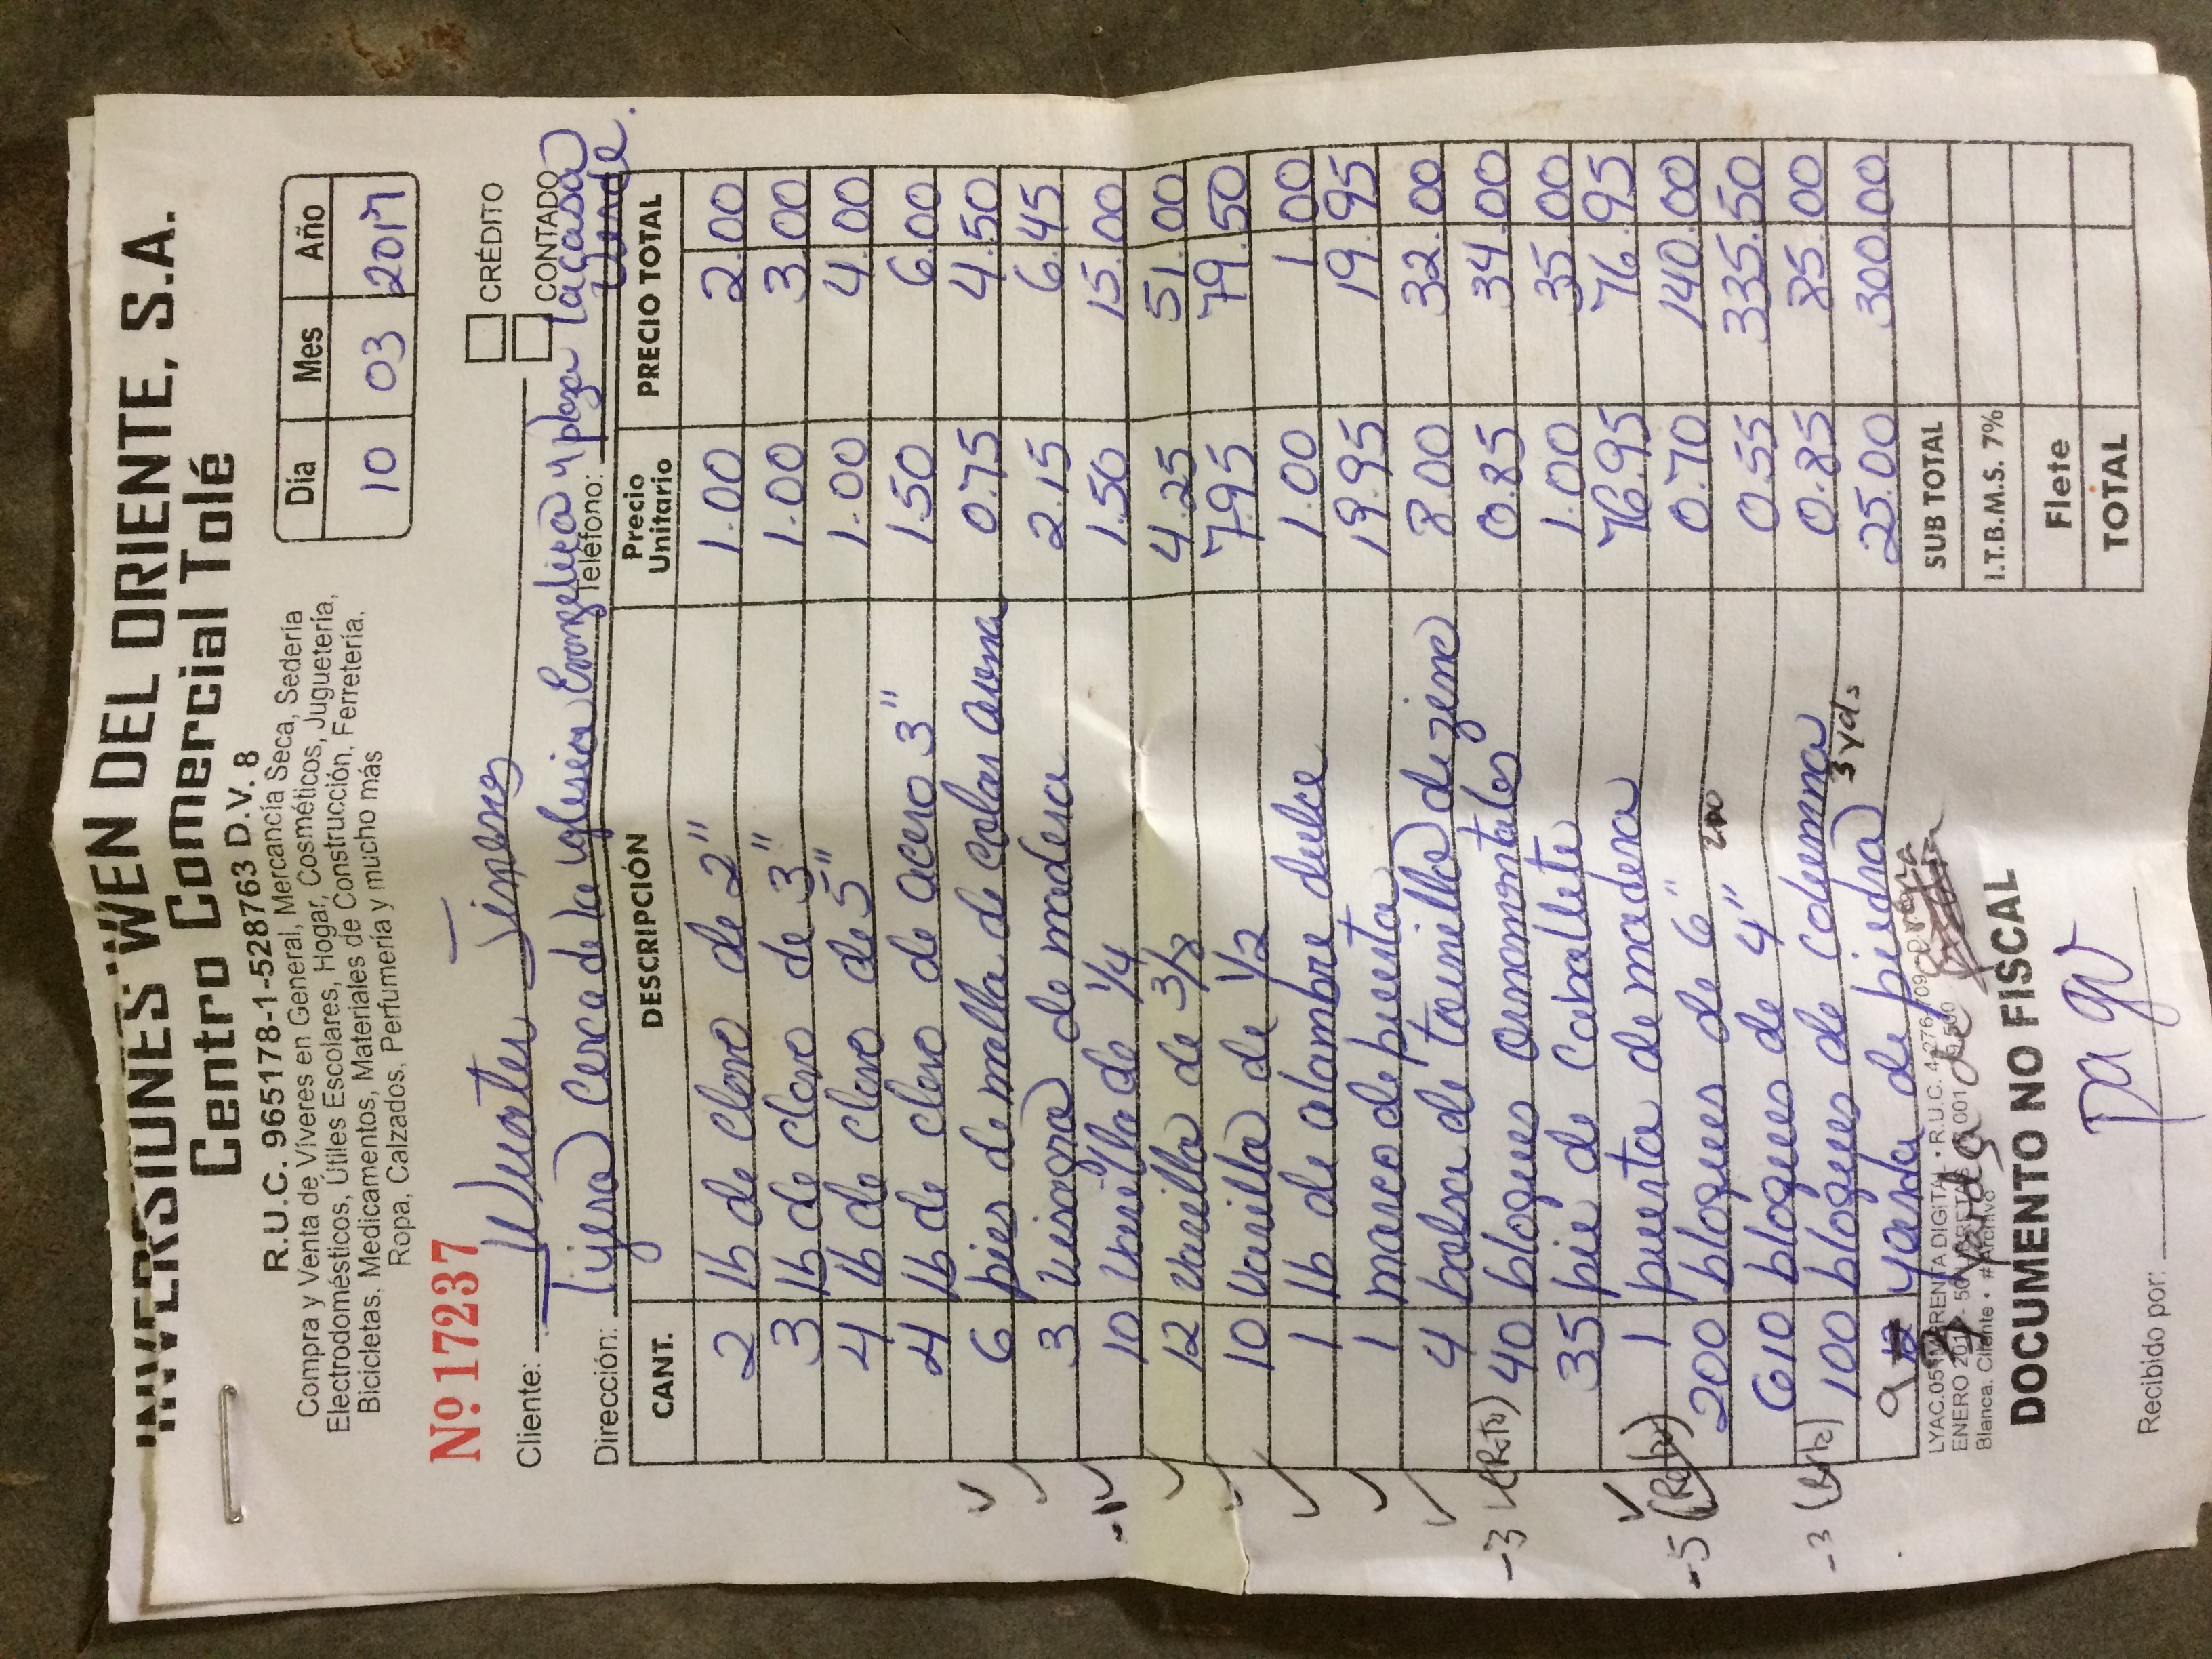 INVERSIONES WEN DEL ORIENTE, S.A.
Centro Comercial Tolé
R.U.C. 965178-1-528763 D.V. 8
Compra y Venta de Víveres en General, Mercancía Seca, Sedería
Electrodomésticos, Útiles Escolares, Hogar, Cosméticos, Juguetería,
Bicicletas, Medicamentos, Materiales de Construcción, Ferretería,
Ropa, Calzados, Perfumería y mucho más
Día Mes Año
10 03 2017
Nº 17237
CRÉDITO
CONTADO
Cliente:
Dirección: cerca de la iglesia Evangelica y plaza la casa
Teléfono: Verde.
CANT. DESCRIPCIÓN Precio Unitario PRECIO TOTAL
2 lb de clavo de 2" 1.00 2.00
3 lb de clavo de 3" 1.00 3.00
4 lb de clavo de 5" 1.00 4.00
4 lb de clavo de acero 3" 1.50 6.00
6 pies de malla de colar arena 0.75 4.50
3 visagra de madera 2.15 6.45
10 varilla de 1/4 1.50 15.00
12 varilla de 3/8 4.25 51.00
10 varilla de 1/2 7.95 79.50
1 lb de alambre dulce 1.00 1.00
1 marco de puerta 19.95 19.95
4 bolsa de tornillo de zinc 8.00 32.00
-3 40 bloques ornamentales 0.85 34.00
35 pie de caballete 1.00 35.00
1 puerta de madera 76.95 76.95
-5 200 bloques de 6" 200 0.70 140.00
610 bloques de 4" 0.55 335.50
-3 100 bloques de columna 0.85 85.00
9 yarda de piedra 3 yds 25.00 300.00
SUB TOTAL
I.T.B.M.S. 7%
Flete
TOTAL
DOCUMENTO NO FISCAL
Pago
Recibido por: